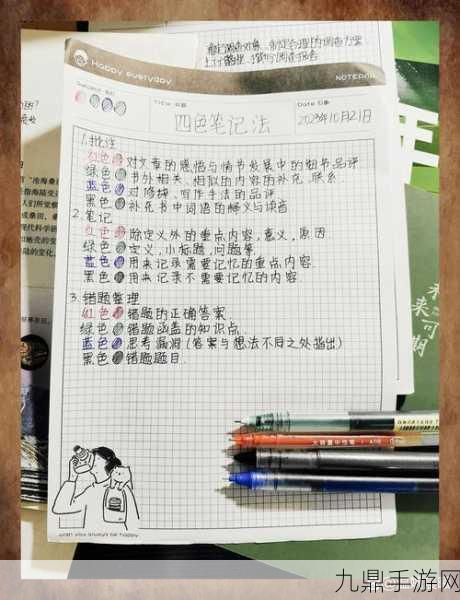 Happy everyday
NOTEPAD
Title 标题
Date 日期
四色笔记法
2023年10月21日
1.批注
红色 对文章的感悟与情节发展中的细节品评
绿色 书外相关、相似的内容的补充、联系
蓝色 对修辞、写作手法的品评
黑色 补充书中词语的释义与读音
2.笔记
红色 除定义外的重点内容,意义,原因
绿色 定义,小标题,问题等
蓝色 用来记录需要记忆的重点内容.
黑色 用来记录不需要记忆的内容
3.错题整理
红色 错题的正确答案.
绿色 错题涵盖的知识点.
蓝色 思考漏洞(答案与想法不同之处指出)
黑色 错题题目.
未来可期
大容量中性笔
九鼎手游网